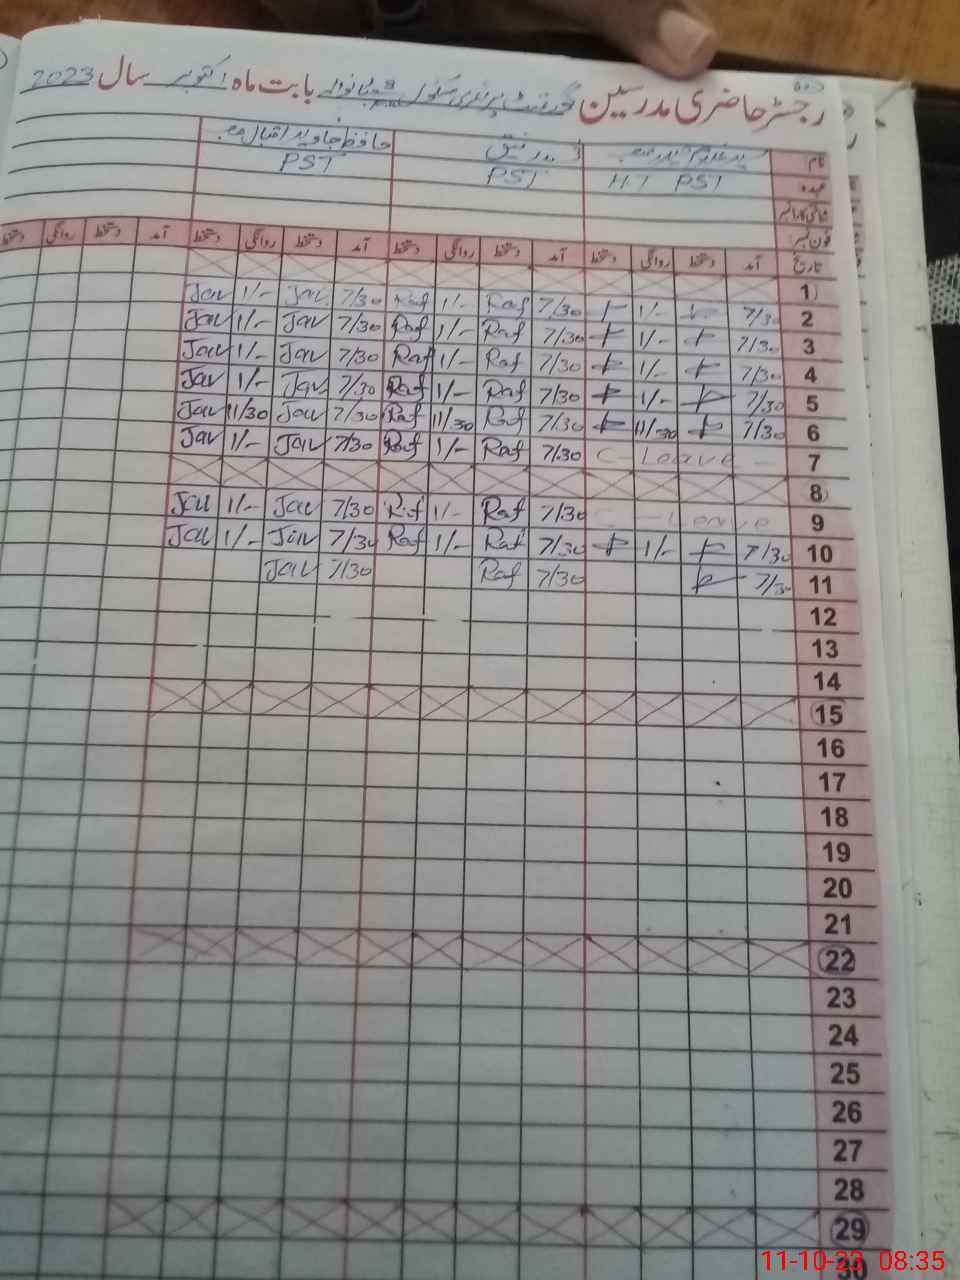 رجسٹر حاضری مدرسین گورنمنٹ پرائمری سکول بابت ماہ اکتوبر سال 2023
نام حافظ جاوید اقبال
عہدہ HT PST PST PST
شناختی کارڈ نمبر
فون نمبر
تاریخ آمد دستخط روانگی دستخط آمد دستخط روانگی دستخط آمد دستخط روانگی دستخط آمد دستخط روانگی دستخط
1
2 7/30 1/- 7/30 Raf 1/- Raf 7/30 Jav 1/- Jav
3 7/30 1/- 7/30 Raf 1/- Raf 7/30 Jav 1/- Jav
4 7/30 1/- 7/30 Raf 1/- Raf 7/30 Jav 1/- Jav
5 7/30 1/- 7/30 Raf 1/- Raf 7/30 Jav 1/- Jav
6 7/30 11/30 7/30 Raf 11/30 Raf 7/30 Jav 11/30 Jav
7 C-Leave - 7/30 Raf 1/- Raf 7/30 Jav 1/- Jav
8
9 C-Leave 7/30 Raf 1/- Raf 7/30 Jav 1/- Jav
10 7/30 1/- 7/30 Raf 1/- Raf 7/30 Jav 1/- Jav
11 7/30 7/30 Raf 7/30 Jav
12
13
14
15
16
17
18
19
20
21
22
23
24
25
26
27
28
29
30
11-10-23 08:35